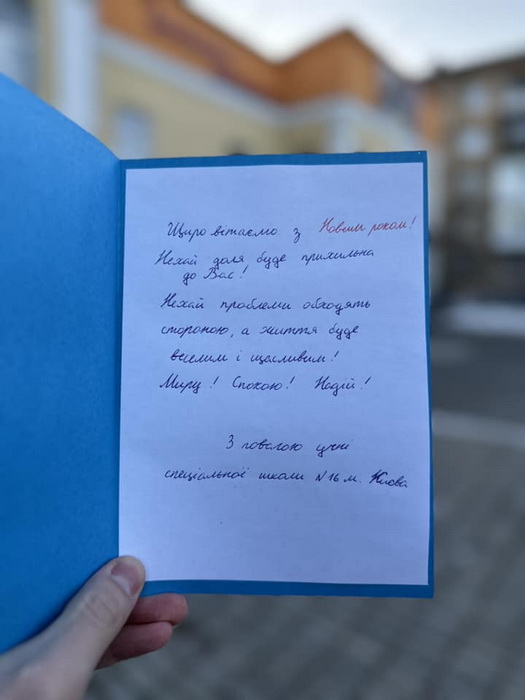 Щиро вітаємо з Новим роком!
Нехай доля буде прихильна
до Вас!
Нехай проблеми обходять
стороною, а життя буде
веселим і щасливим!
Миру! Спокою! Надій!
З повагою учні
спеціальної школи №16 м. Києва